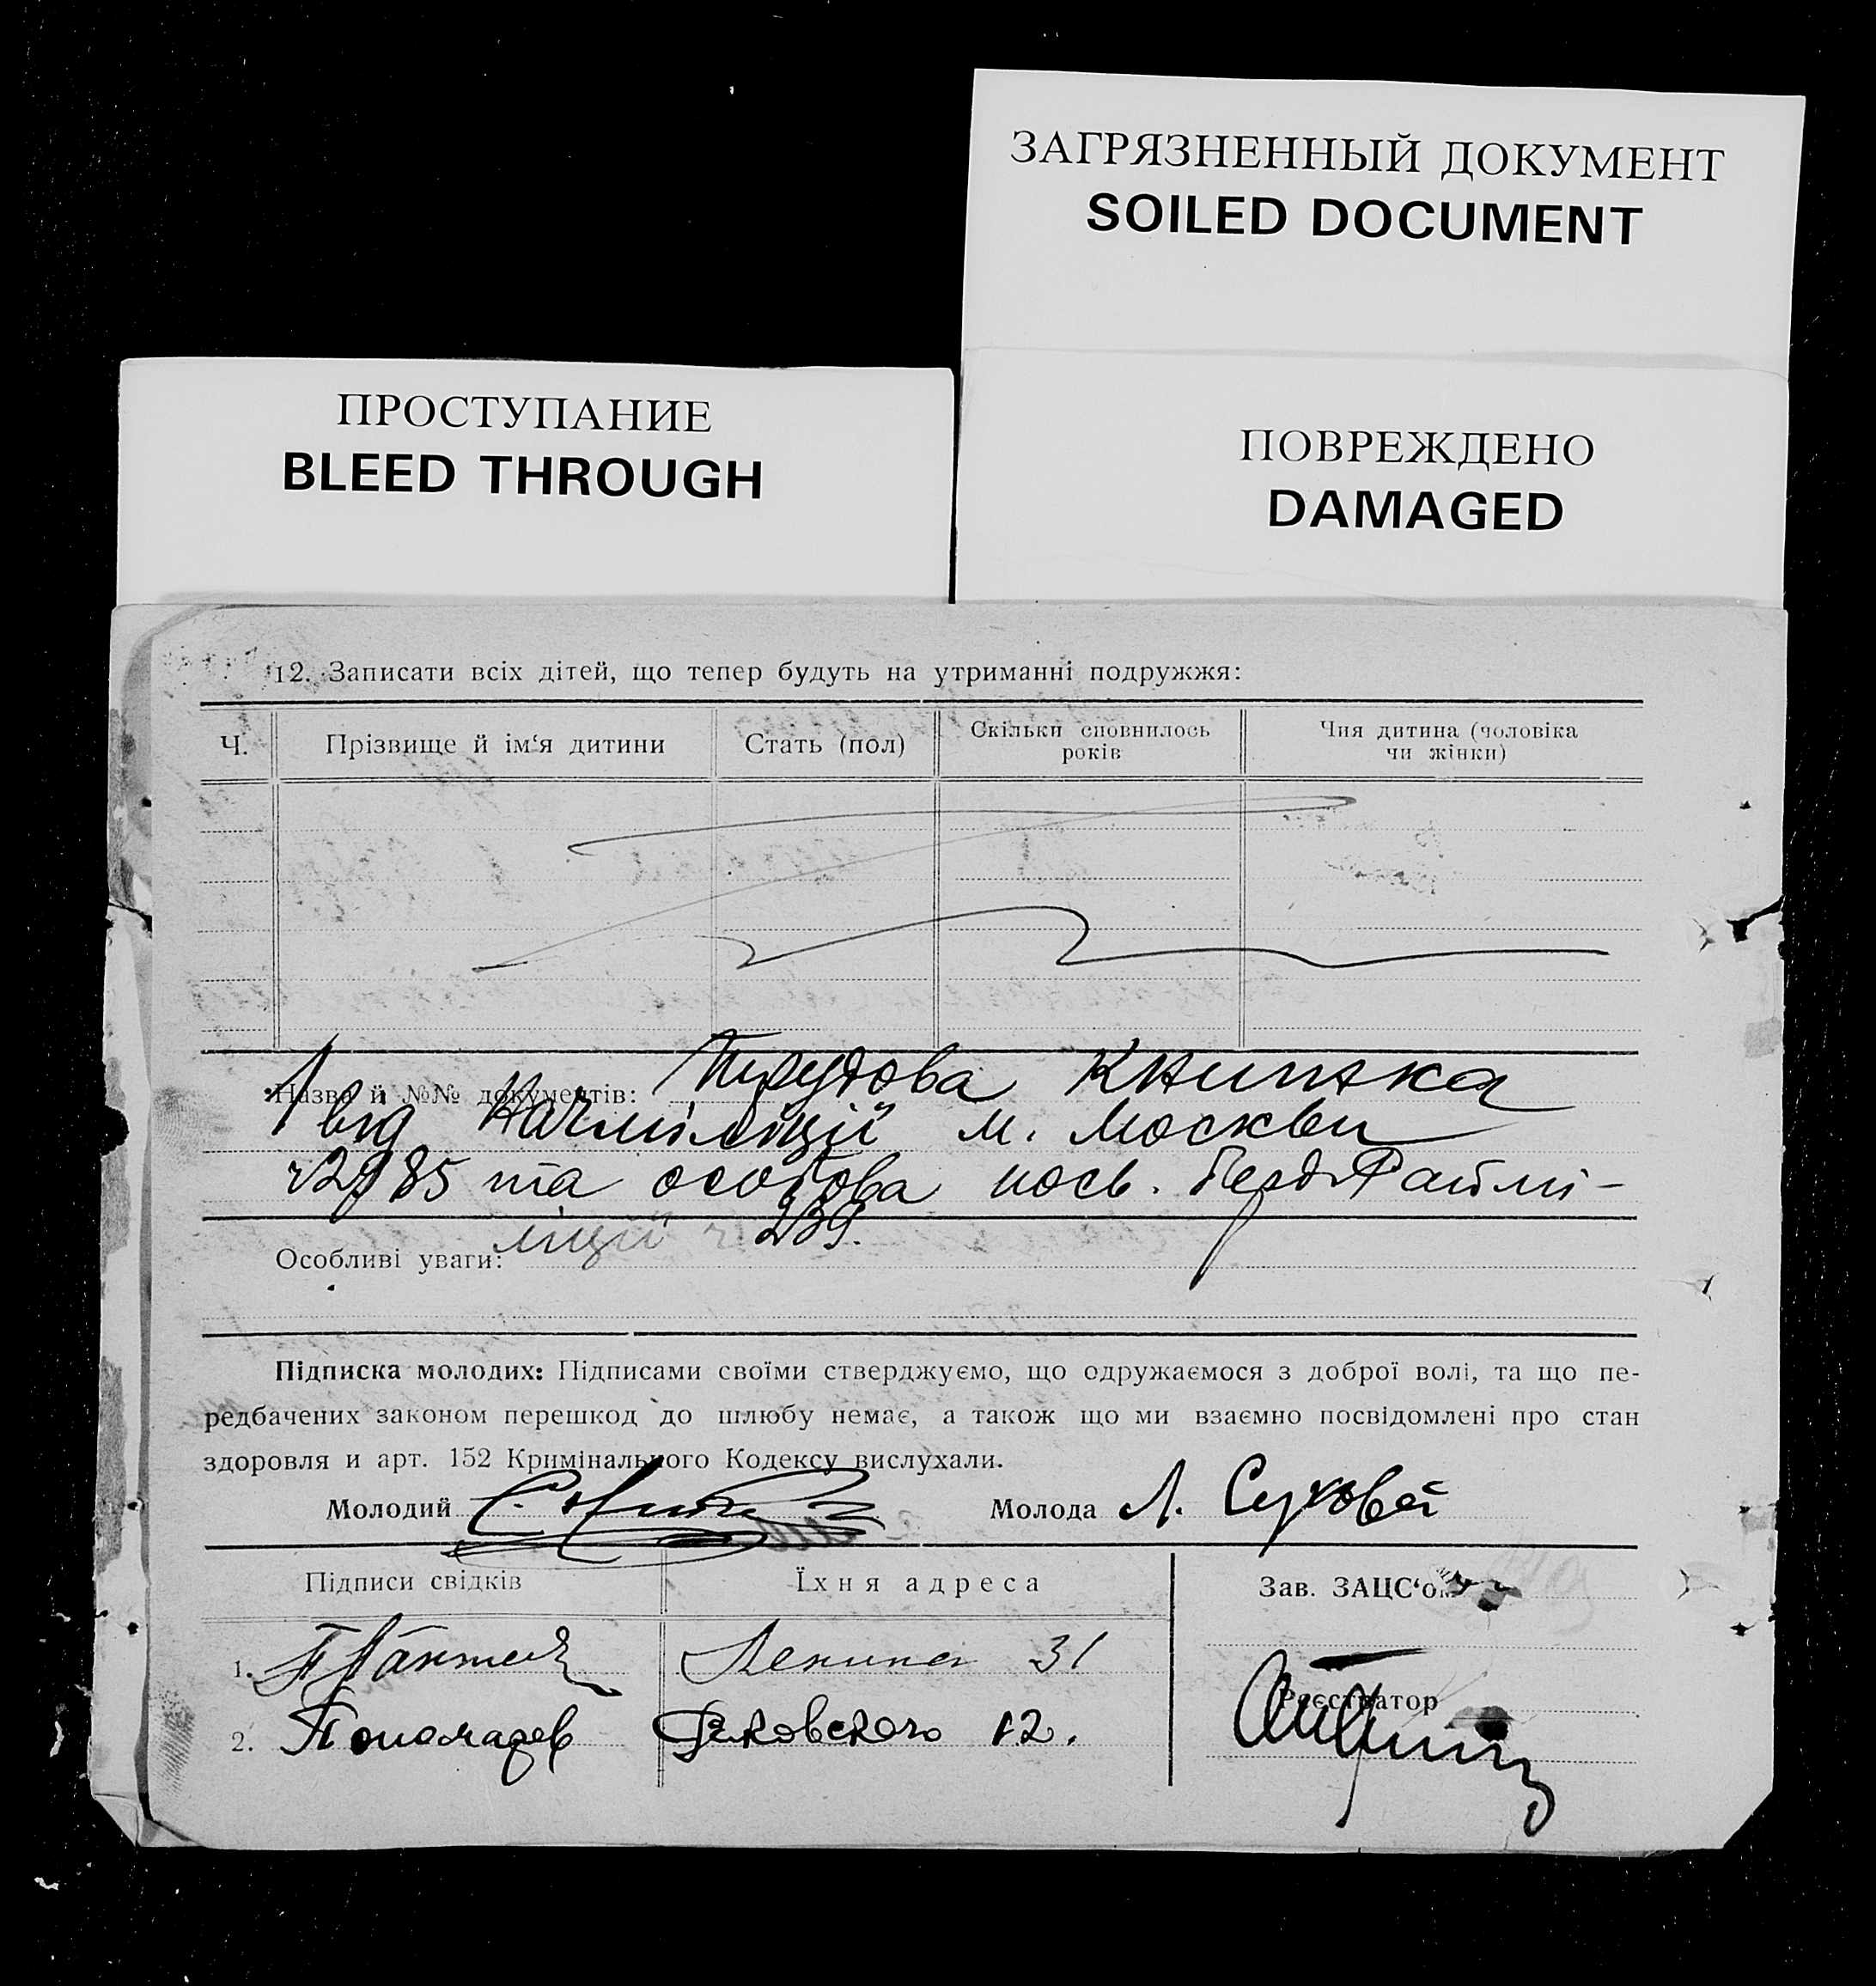 ЗАГРЯЗНЕННЫЙ ДОКУМЕНТ
SOILED DOCUMENT
ПРОСТУПАНИЕ
BLEED THROUGH
ПОВРЕЖДЕНО
DAMAGED
12. Записати всіх дітей, що тепер будуть на утриманні подружжя:
Ч.
Прізвище й ім‘я дитини
Стать (пол)
Скільки сповнилось
років
Чия дитина (чоловіка
чи жінки)
Назва й №№ документів: Трудова Книжка
від Начміліції м. Москви
ч 2985 та особова посв. Берд Раймі-
ліції ч 239.
Особливі уваги:
Підписка молодих: Підписами своїми стверджуємо, що одружаємося з доброї волі, та що пе-
редбачених законом перешкод до шлюбу немає, а також що ми взаємно посвідомлені про стан
здоровля и арт. 152 Кримінального Кодексу вислухали.
Молодий
Молода Л. Сукова
Підписи свідків
Їхня адреса
Зав. ЗАЦС‘ом
1.
Ленина 31
Реєстратор
2. Пономарев
12.